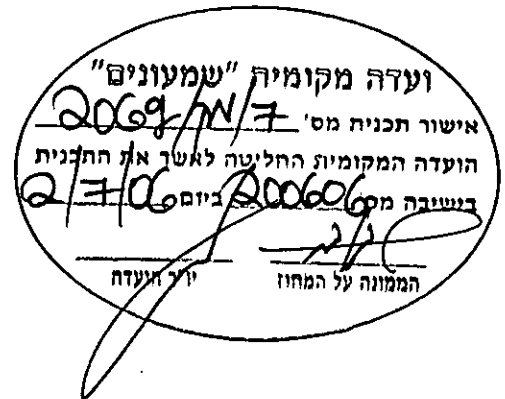 ועדה מקומית "שמעונים"
אישור תכנית מס' 7/מק/2069
הועדה המקומית החליטה לאשר את התכנית
בישיבה מס' 200606 ביום 2/7/06
יו"ר הועדה
הממונה על המחוז